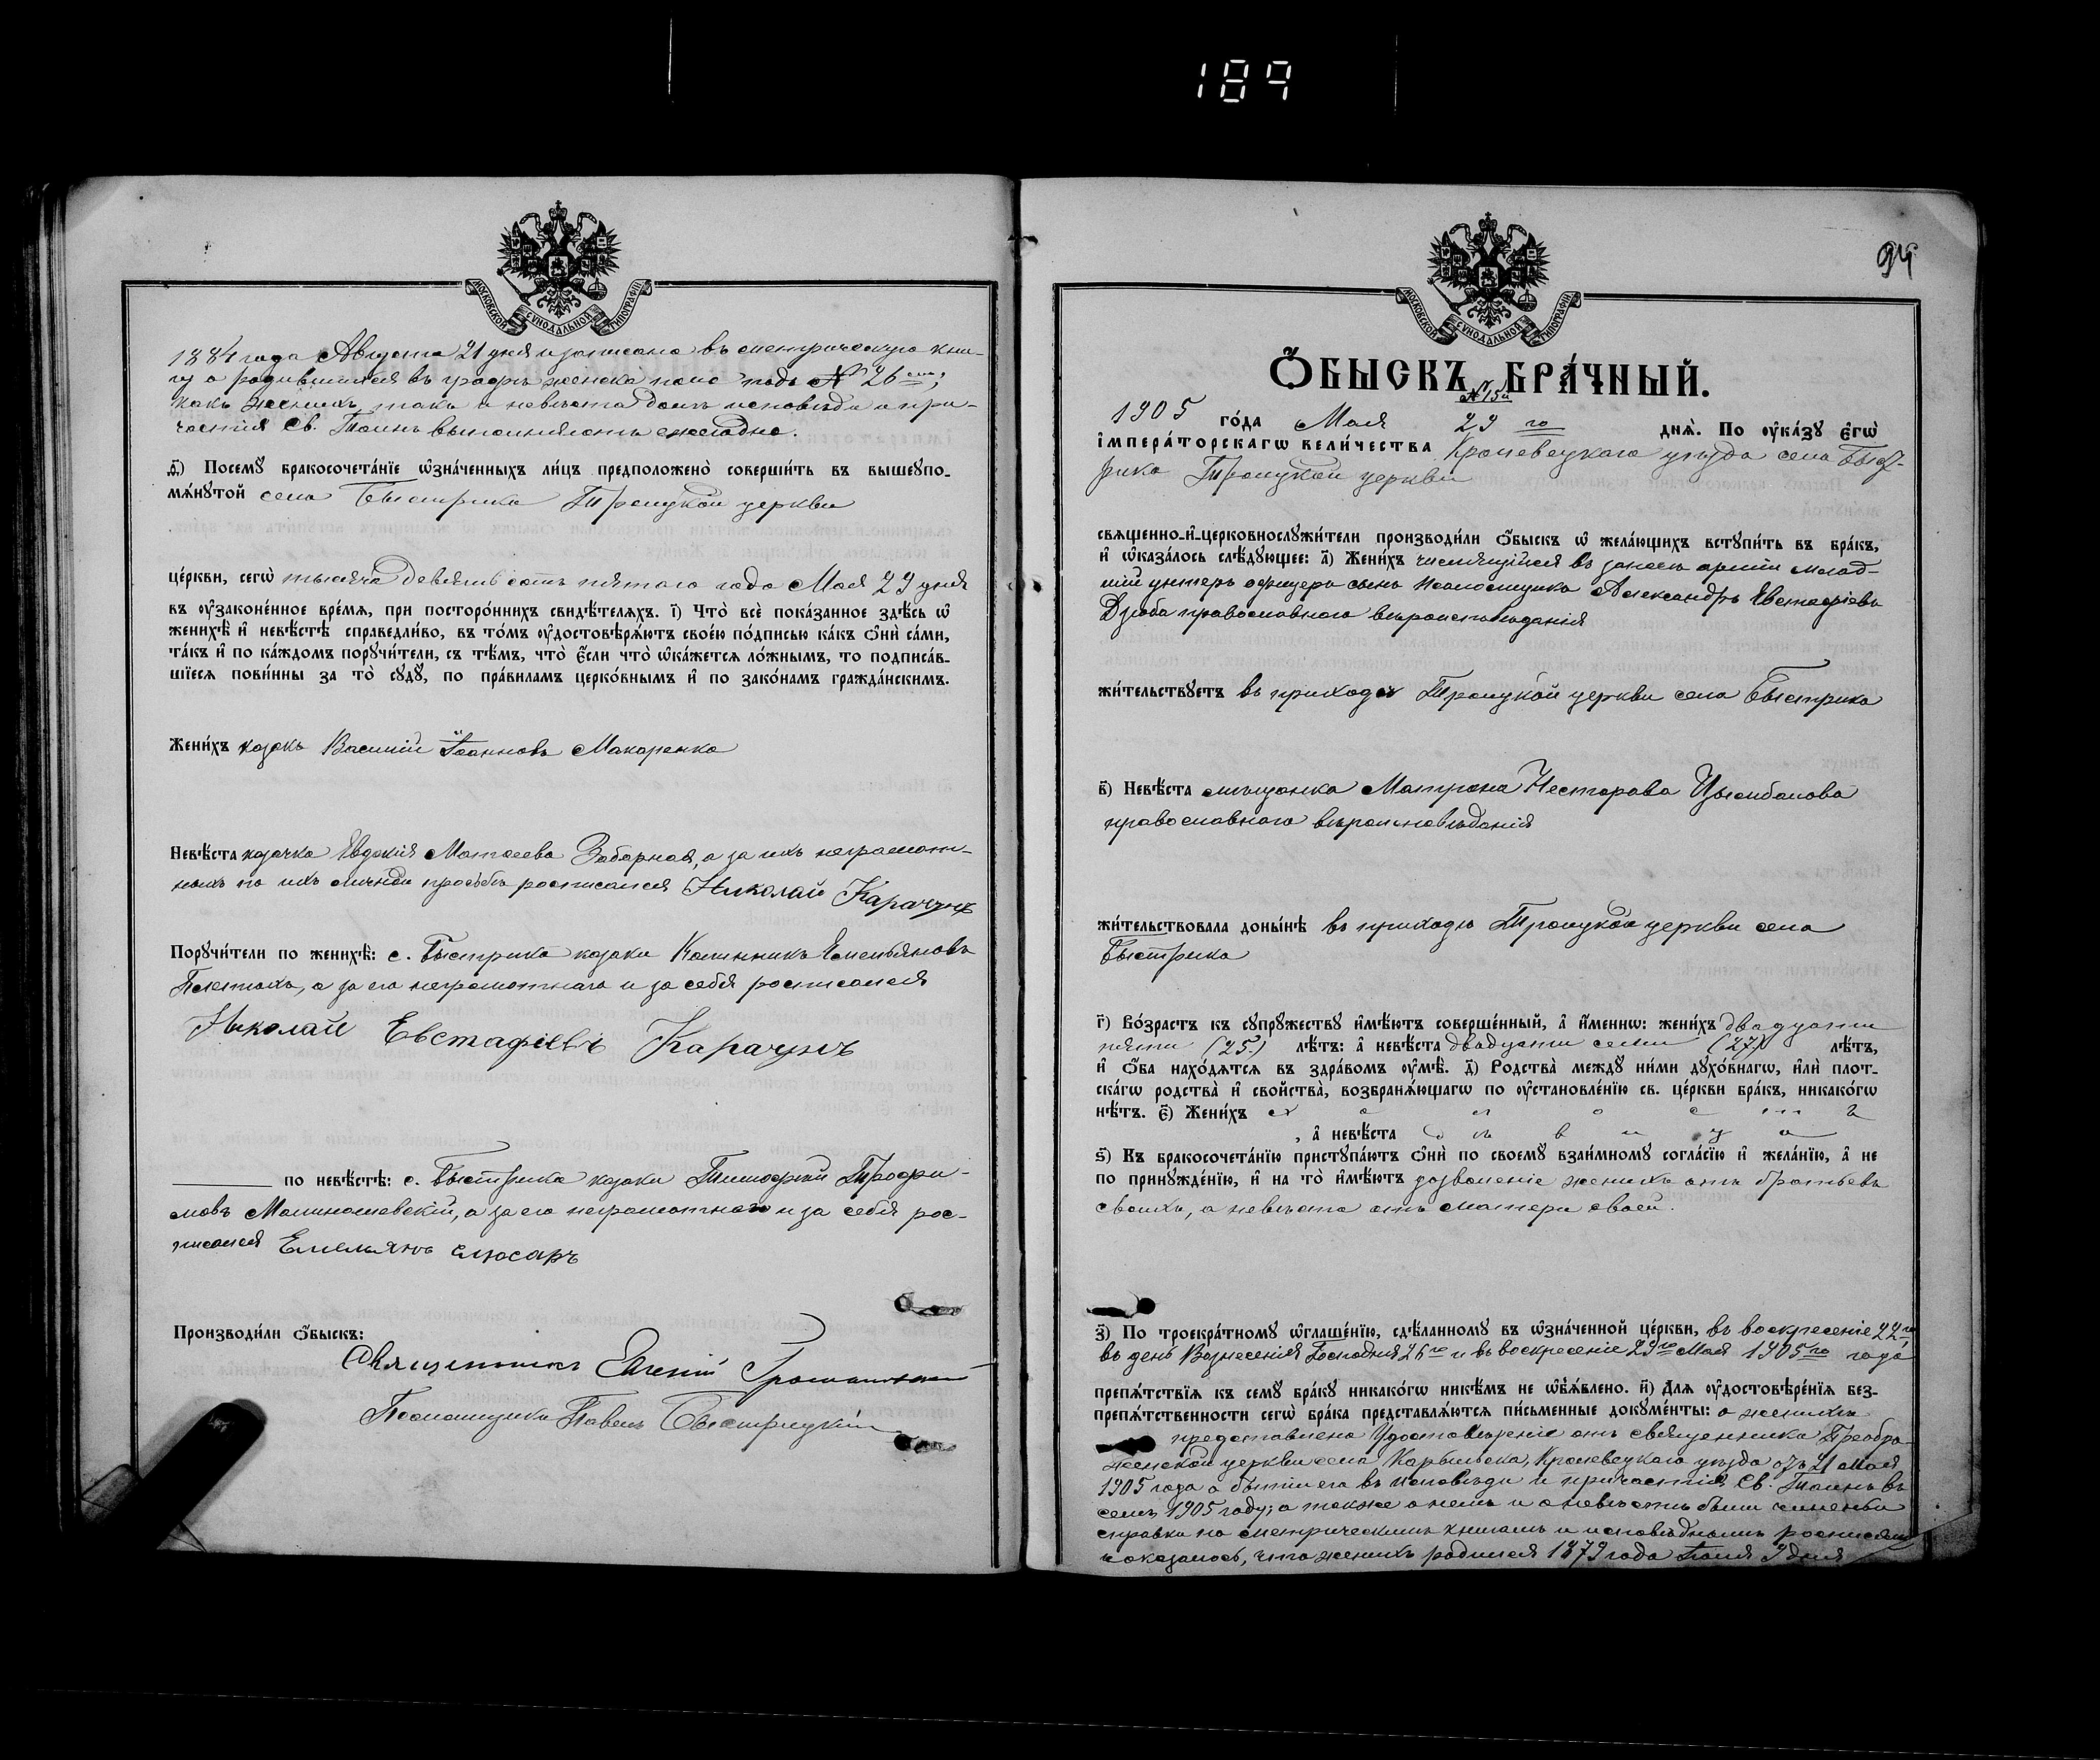 189
МОСКОВСКОЙ СѴНОДАЛЬНОЙ ТИПОГРАФІИ
1884 года Августа 21 дня и записано въ метрическую кни-
гу о родившихся въ графѣ женска пола подъ № 26
какъ женихъ, такъ и невѣста долгъ исповѣди и при-
частія Св. Таинъ выполняютъ ежегодно.
Ѳ҃) Посемꙋ бракосочета́нїе ѡ҆зна́ченныхъ ли́цъ предположено̀ соверши́ть въ вышеꙋпо-
мѧ́нꙋтой села Быстрика Троицкой церкви
це́ркви, сегѡ̀ тысяча девятьсотъ пятого года Мая 29 дня
въ ᲂу҆законе́нное вре́мѧ, при посторо́ннихъ свидѣ́телѧхъ. і҃) Что̀ всѐ пока́занное здѣ́сь ѡ҆
женихѣ̀ и҆ невѣ́стѣ справедли́во, въ то́мъ ᲂу҆достовѣрѧ́ютъ своє́ю по́дписью ка́къ ѻ҆нѝ са́ми,
та́къ и҆ по ка́ждомъ порꙋчи́тели, съ тѣ́мъ, что̀ є҆́сли что̀ ѡ҆ка́жетсѧ ло́жнымъ, то подписа́в-
шїесѧ пови́нны за то̀ сꙋдꙋ̀, по пра́виламъ церко́внымъ и҆ по зако́намъ гражда́нскимъ.
Жени́хъ козакъ Василій Іоанновъ Макаренко
Невѣ́ста козачка Евдокія Матѳеева Заборная, а за ихъ неграмот-
ныхъ по ихъ личной просьбѣ росписался Николай Карачунъ
Порꙋчи́тели по женихѣ̀: с. Быстрика козаки Калинникъ Емельяновъ
а за его неграмотнаго и за себя росписался
Николай Евстафіевъ Карачунъ
по невѣ́стѣ: с. Быстрика козаки Тимофей Трофи-
мовъ Малиношевскій, а за его неграмотнаго и за себя рос-
писался Емельянъ слюсаръ
Производи́ли ѻ҆́быскъ:
Священникъ Евгеній
Псаломщикъ Павелъ Быстрицкій
94
МОСКОВСКОЙ СѴНОДАЛЬНОЙ ТИПОГРАФІИ
Ѻ҆́БЫСКЪ БРА́ЧНЫЙ.
№ 15й
1905 го́да Мая 29 го днѧ̀. По ᲂу҆ка́зꙋ є҆гѡ̀
і҆мпера́торскагѡ вели́чества Кролевецкаго уѣзда села Быст-
рика Троицкой церкви
свѧщенно-и҆-церковнослꙋжи́тели производи́ли ѻ҆́быскъ ѡ҆ жела́ющихъ встꙋпи́ть въ бра́къ,
и҆ ѡ҆каза́лось слѣ́дꙋющее: а҃) Жени́хъ числящійся въ запасѣ арміи млад-
шій унтеръ офицеръ сынъ псаломщика Александръ Евстафіевъ
Дзюба православного вѣроисповѣданія
жи́тельствꙋетъ въ приходѣ Троицкой церкви села Быстрика
в҃) Невѣ́ста мѣщанка Матрона Несторова Цымбалова
православного вѣроисповѣданія
жи́тельствовала доны́нѣ въ приходѣ Троицкой церкви села
Быстрика
г҃) Во́зрастъ къ сꙋпрꙋжествꙋ и҆мѣ́ютъ соверше́нный, а҆ и҆́менно: жени́хъ двадцати
пяти (25) лѣ́тъ: а҆ невѣ́ста двадцати семи (27) лѣ́тъ,
и҆ ѻ҆́ба нахо́дѧтсѧ въ здра́вомъ ᲂу҆мѣ̀. д҃) Родства̀ междꙋ ни́ми дꙋхо́внагѡ, и҆лѝ плот-
ска́гѡ родства̀ и҆ сво́йства, возбранѧ́ющагѡ по ᲂу҆становле́нїю св. це́ркви бра́къ, никако́гѡ
нѣ́тъ. є҃) Жени́хъ х о л о с т ъ
, а҆ невѣ́ста д ѣ в и ц а
ѕ҃) Къ бракосочета́нїю пристꙋпа́ютъ ѻ҆нѝ по своемꙋ̀ взаи́мномꙋ согла́сїю и҆ жела́нїю, а҆ не
по принꙋжде́нїю, и҆ на то̀ и҆мѣ́ютъ дозволеніе женихъ отъ братьевъ
своихъ, а невѣста отъ матери своей.
з҃) По троекра́тномꙋ ѡ҆глаше́нїю, сдѣ́ланномꙋ въ ѡ҆зна́ченной це́ркви, въ воскресеніе 22го,
въ день Вознесенія Господня 26го и въ воскресеніе 29го Мая 1905го года
препѧ́тствїѧ къ семꙋ̀ бра́кꙋ никако́гѡ никѣ́мъ не ѡ҆б̾ѧ́влено. и҃) Длѧ ᲂу҆достовѣре́нїѧ без-
препѧ́тственности сегѡ̀ бра́ка представлѧ́ютсѧ пи́сьменные докꙋме́нты: о женихѣ
представлено Удостовѣреніе отъ священника Преобра-
женской церкви села Кролевецкаго уѣзда отъ 21 Мая
1905 года о бытіи его въ исповѣди и причастія Св. Таинъ въ
семъ 1905 году; а также о немъ и о невѣстѣ были чинены
справки по метрическимъ книгамъ и исповѣднымъ росписямъ
и оказалось, что женихъ родился 1879 года 9 дня